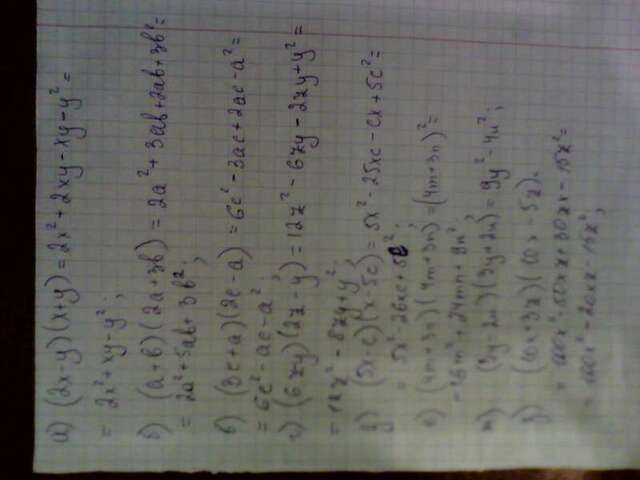 а) (2x-y)(x+y)=2x²+2xy-xy-y²=
= 2x²+xy-y²;
б) (a+b)(2a+3b)=2a²+3ab+2ab+3b²=
= 2a²+5ab+3b²;
в) (3c+a)(2c-a)=6c²-3ac+2ac-a²=
= 6c²-ac-a²;
г) (6zy)(2z-y)=12z²-6zy-2zy+y²=
= 12z²-8zy+y²;
д) (5x-c)(x-5c)=5x²-25xc-cx+5c²=
= 5x²-26xc+5c²;
е) (4m+3n)(4m+3n)=(4m+3n)²=
= 16m²+24mn+9n²;
ж) (3y-2u)(3y+2u)=9y²-4u²;
з) (10x+3z)(10x-5z)=
= 100x²-50xz+30zx-15z²=
= 100x²-20xz-15z²;